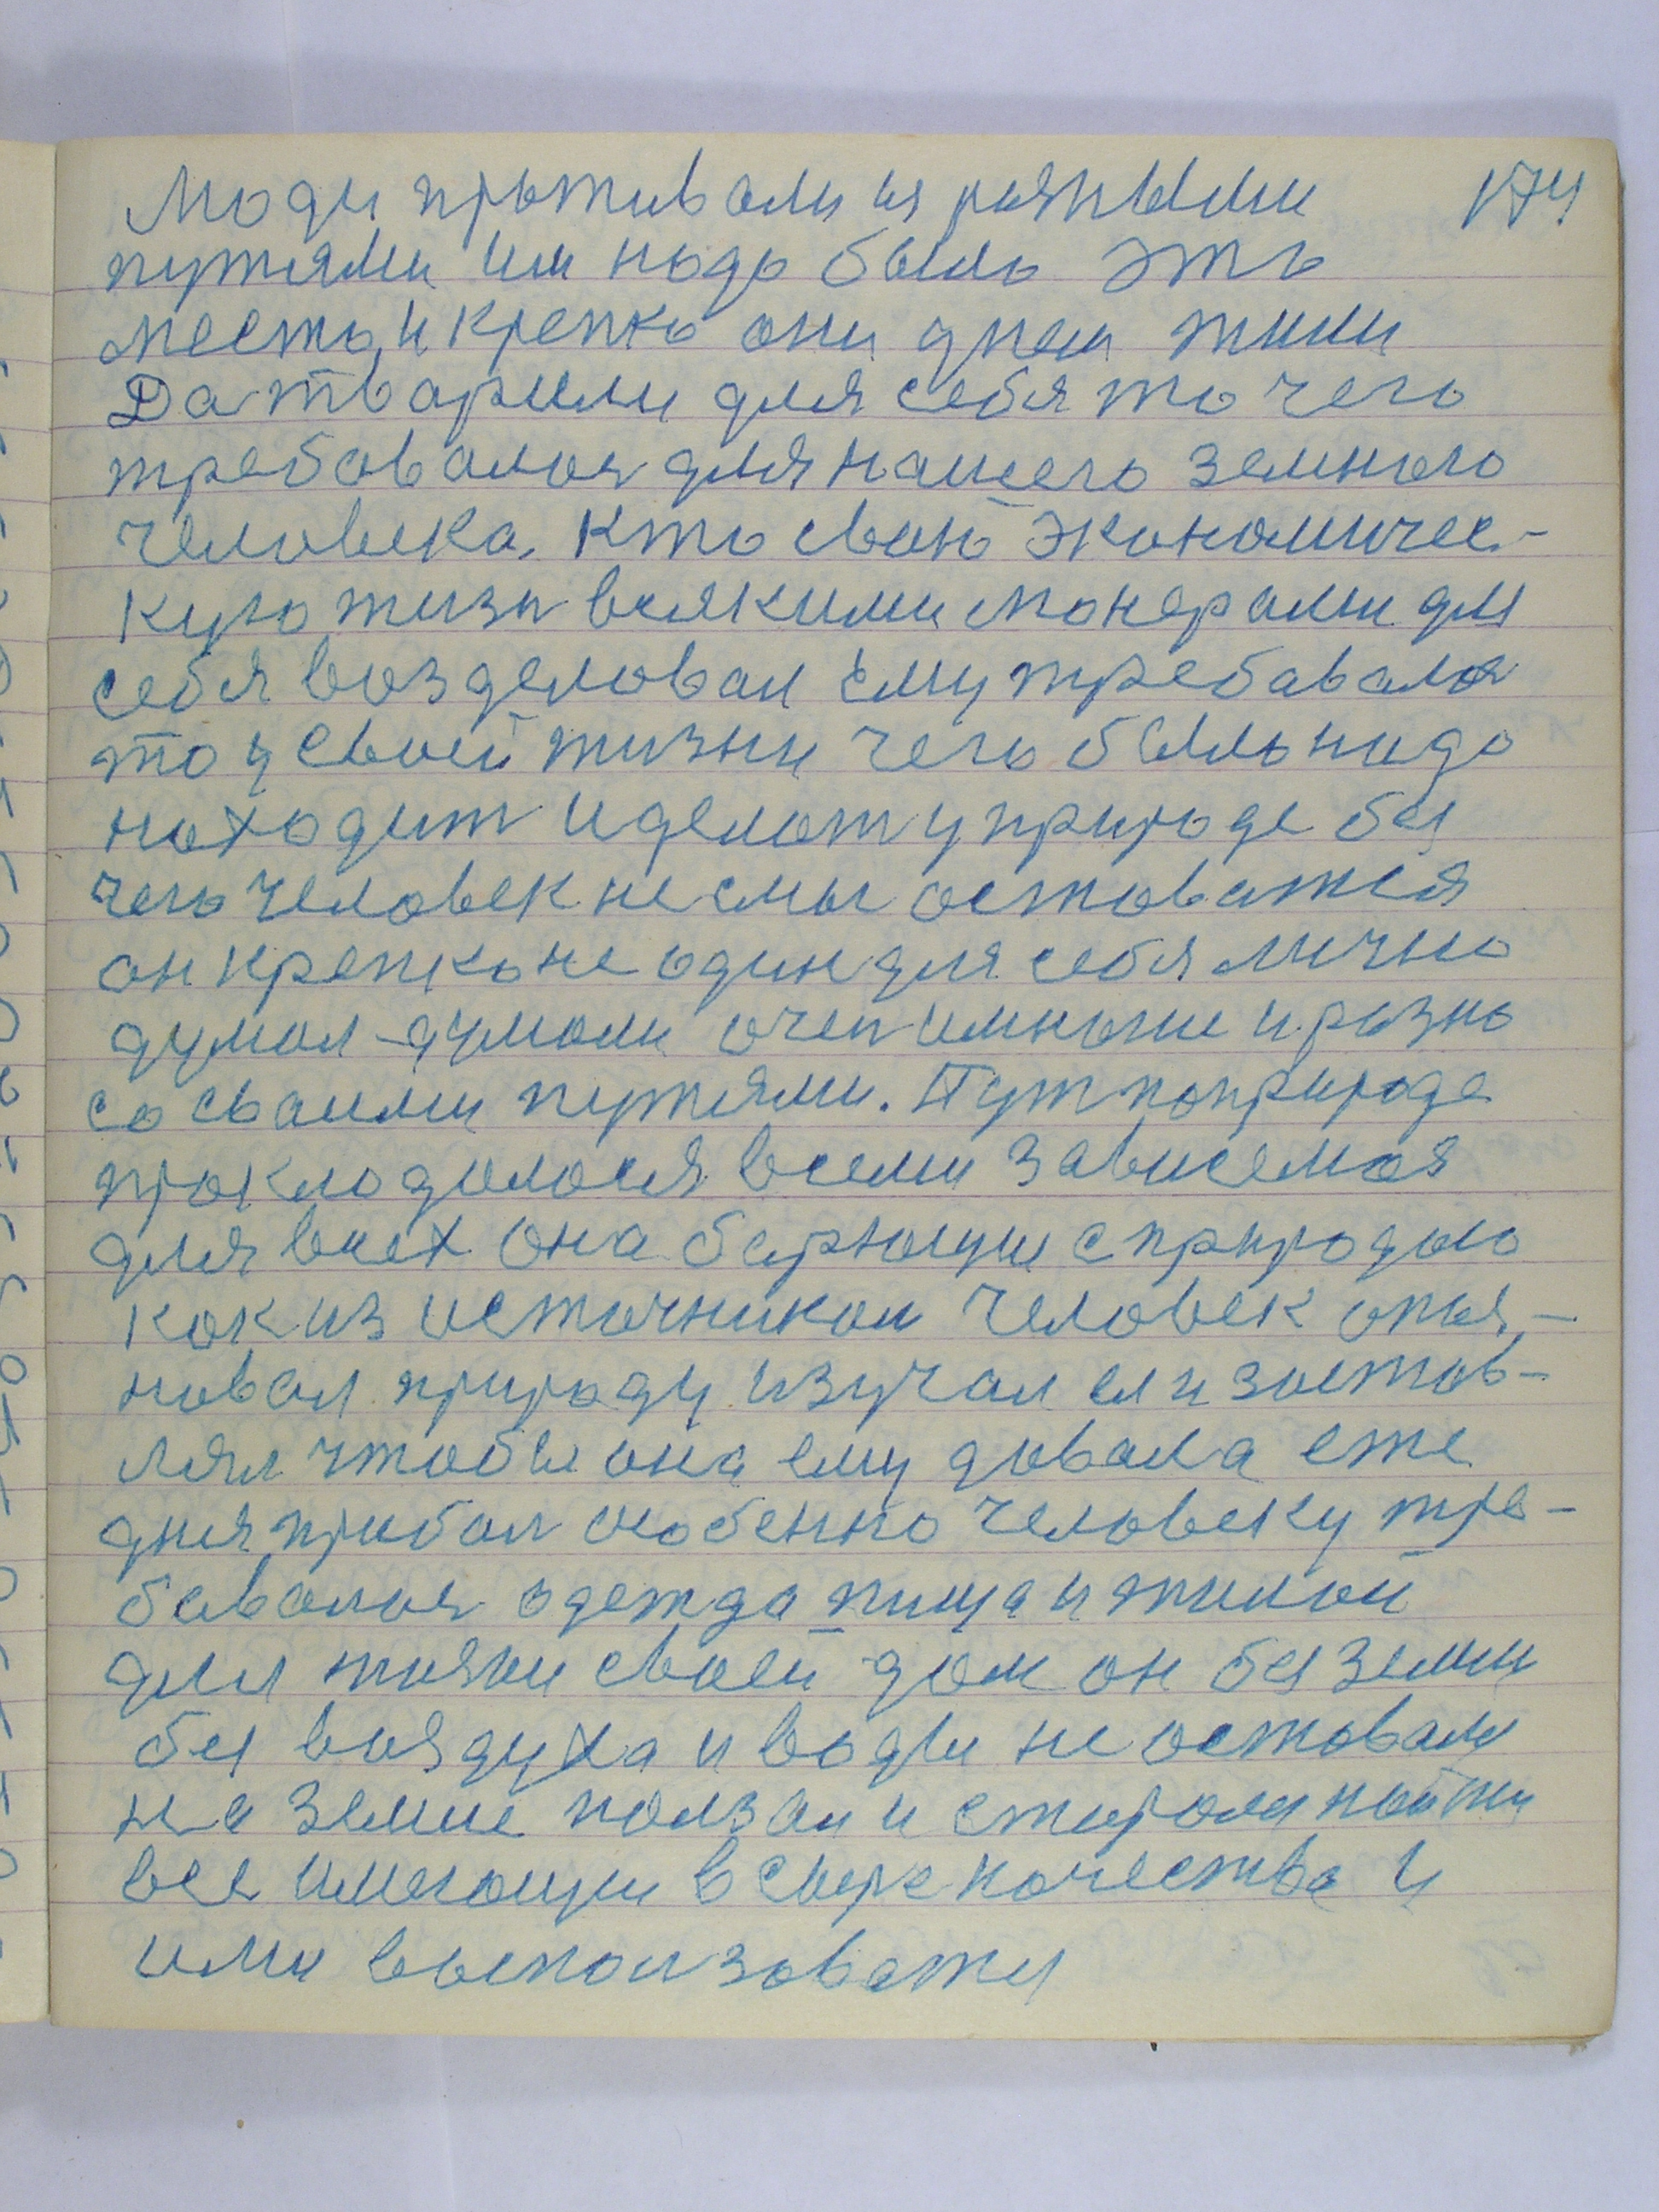 Люди прживалися разными 174
путями им надо было это
место, и крепко они днем жили
Да творили для себя то чего
требовалось для нашего земного
человека. Кто свою экономичес-
кую жизн всякими монерами для
себя возделовал ему требавалося
то у своей жизни чего было надо
находит и делат у природе без
чего человек не смог оставатся
он крепко не один для себя лично
думал-думали очен имногие и разно
со своими путями. Пут по природе
прокладовался всеми зависемоя
для всех она борющие с природою
как из источником человек опоз-
новал природу изучал ея и застав-
лял чтобы она ему довала еже
дня прибыл особенно человеку тре-
бавалося одежда пища и жилой
для жизни своей дом он без земли
без воздуха и воды не оставался
на земле ползал и старался найти
все имеющии в сыре качества и
ими выползоватся